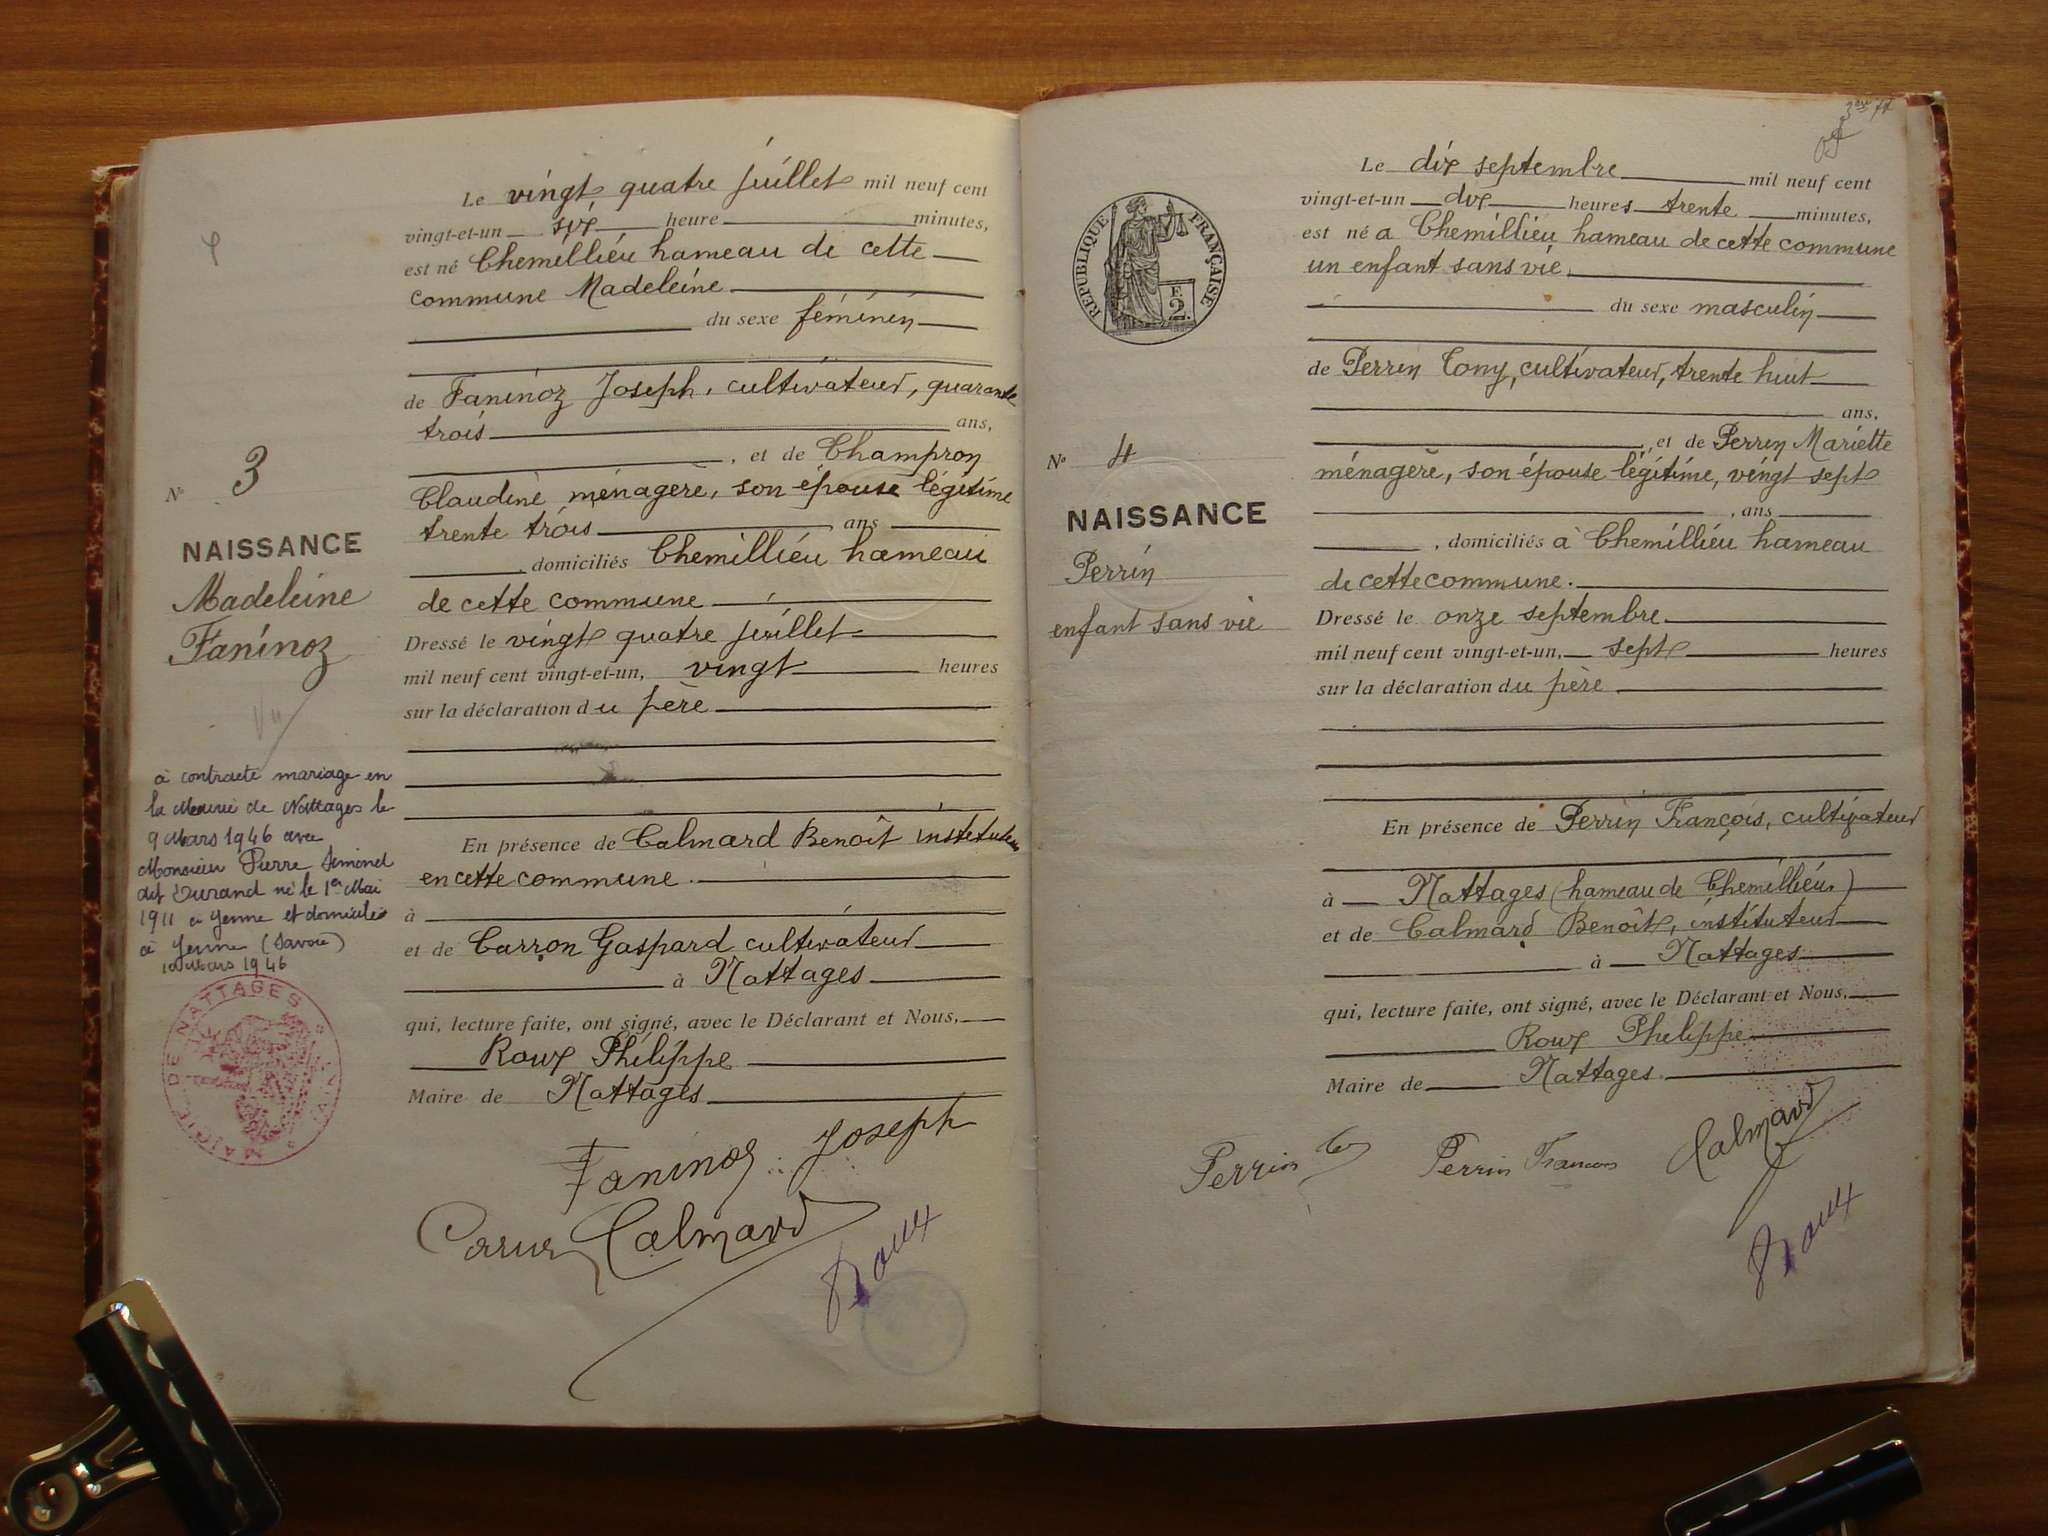 Le vingt quatre juillet mil neuf cent
vingt-et-un six heure minutes,
est né Chemillieu hameau de cette
commune Madeleine
du sexe féminin
de Faninoz Joseph, cultivateur, quarante
trois ans,
, et de Champron
Claudine ménagère, son épouse légitime
trente trois ans
, domiciliés Chemillieu hameau
de cette commune
Dressé le vingt quatre juillet
mil neuf cent vingt-et-un, vingt heures
sur la déclaration du père
En présence de Calmard Benoît instituteur
en cette commune.
à
et de Carron Gaspard cultivateur
à Nattages
qui, lecture faite, ont signé, avec le Déclarant et Nous,
Roux Philippe
Maire de Nattages
Faninoz Joseph
Calmard
Roux
N° 3
NAISSANCE
Madeleine
Faninoz
Vu
à contracté mariage en
la Mairie de Nattages le
9 Mars 1946 avec
Monsieur Pierre Simonel
dit Durand né le 1er Mai
1911 à Yenne et domicilié
à Yenne (Savoie)
10 Mars 1946
MAIRIE DE NATTAGES
REPUBLIQUE FRANÇAISE
2 F.
N° 4
NAISSANCE
Perrin
enfant sans vie
Le dix septembre mil neuf cent
vingt-et-un dix heures trente minutes,
est né a Chemillieu hameau de cette commune
un enfant sans vie.
du sexe masculin
de Perrin Tony, cultivateur, trente huit
ans,
, et de Perrin Mariette
ménagère, son épouse légitime, vingt sept
, ans
, domiciliés à Chemillieu hameau
de cette commune.
Dressé le onze septembre
mil neuf cent vingt-et-un, sept heures
sur la déclaration du père
En présence de Perrin François, cultivateur
à Nattages (hameau de Chemillieu)
et de Calmard Benoît, instituteur
à Nattages
qui, lecture faite, ont signé, avec le Déclarant et Nous,
Roux Philippe
Maire de Nattages.
Perrin Perrin François Calmard
Roux